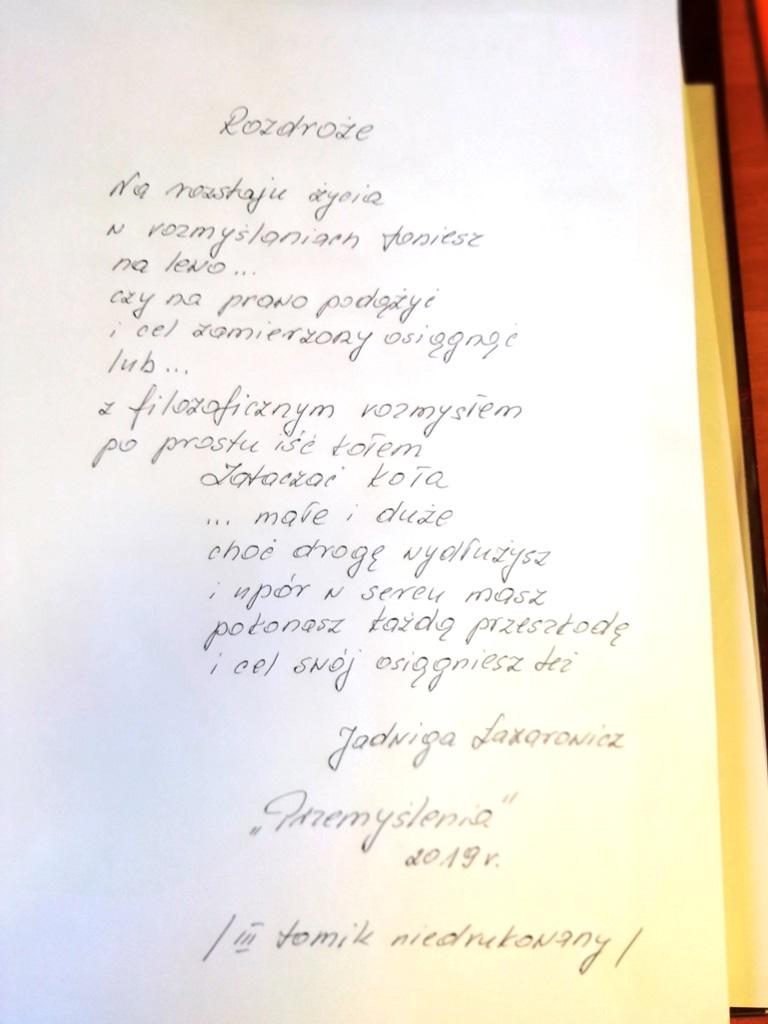 Rozdroże
Na rozstaju życia
w rozmyślaniach toniesz
na lewo...
czy na prawo podążyć
i cel zamierzony osiągnąć
lub...
z filozoficznym rozmysłem
po prostu iść kołem
Zataczać koła
... małe i duże
choć drogę wydłużysz
i upór w sercu masz
pokonasz każdą przeszkodę
i cel swój osiągniesz też
Jadwiga
„Przemyślenia"
2019 r.
/ III tomik niedrukowany /